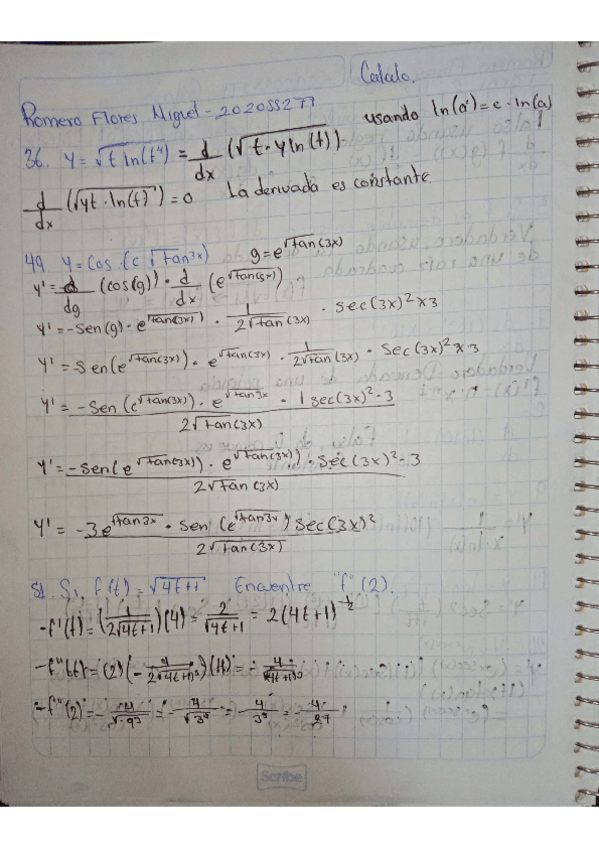 Calculo.
Romero Flores Miguel - 202055277
usando ln(a^c) = c · ln(a)
36. y = √t ln(t⁴) = d/dx (√t · 4 ln(t))
d/dx (√4t · ln(t)) = 0 La derivada es constante.
49 y = Cos (e √tan3x) g = e^√tan(3x)
y' = d/dg (cos(g)) · d/dx (e^√tan(3x))
y' = -sen(g) · e^√tan(3x) · 1/2√tan(3x) · sec(3x)² × 3
y' = -sen(e^√tan(3x)) · e^√tan(3x) · 1/2√tan(3x) · sec(3x)² × 3
y' = -sen(e^√tan(3x)) · e^√tan3x · 1 sec(3x)² · 3 / 2√tan(3x)
y' = -sen(e^√tan(3x)) · e^√tan(3x) · sec(3x)² · 3 / 2√tan(3x)
y' = -3e^√tan3x · sen(e^√tan3x) sec(3x)² / 2√tan(3x)
51. Si f(t) = √4t+1 Encuentre "f"(2).
-f'(t) = (1/2√4t+1)(4) = 2/√4t+1 = 2(4t+1)^-1/2
-f''(t) = (2)(- 1/2√(4t+1)³)(4) = - 4/√(4t+1)³
-f''(2) = - 4/√9³ = - 4/√3⁶ = - 4/3³ = - 4/27
Scribe